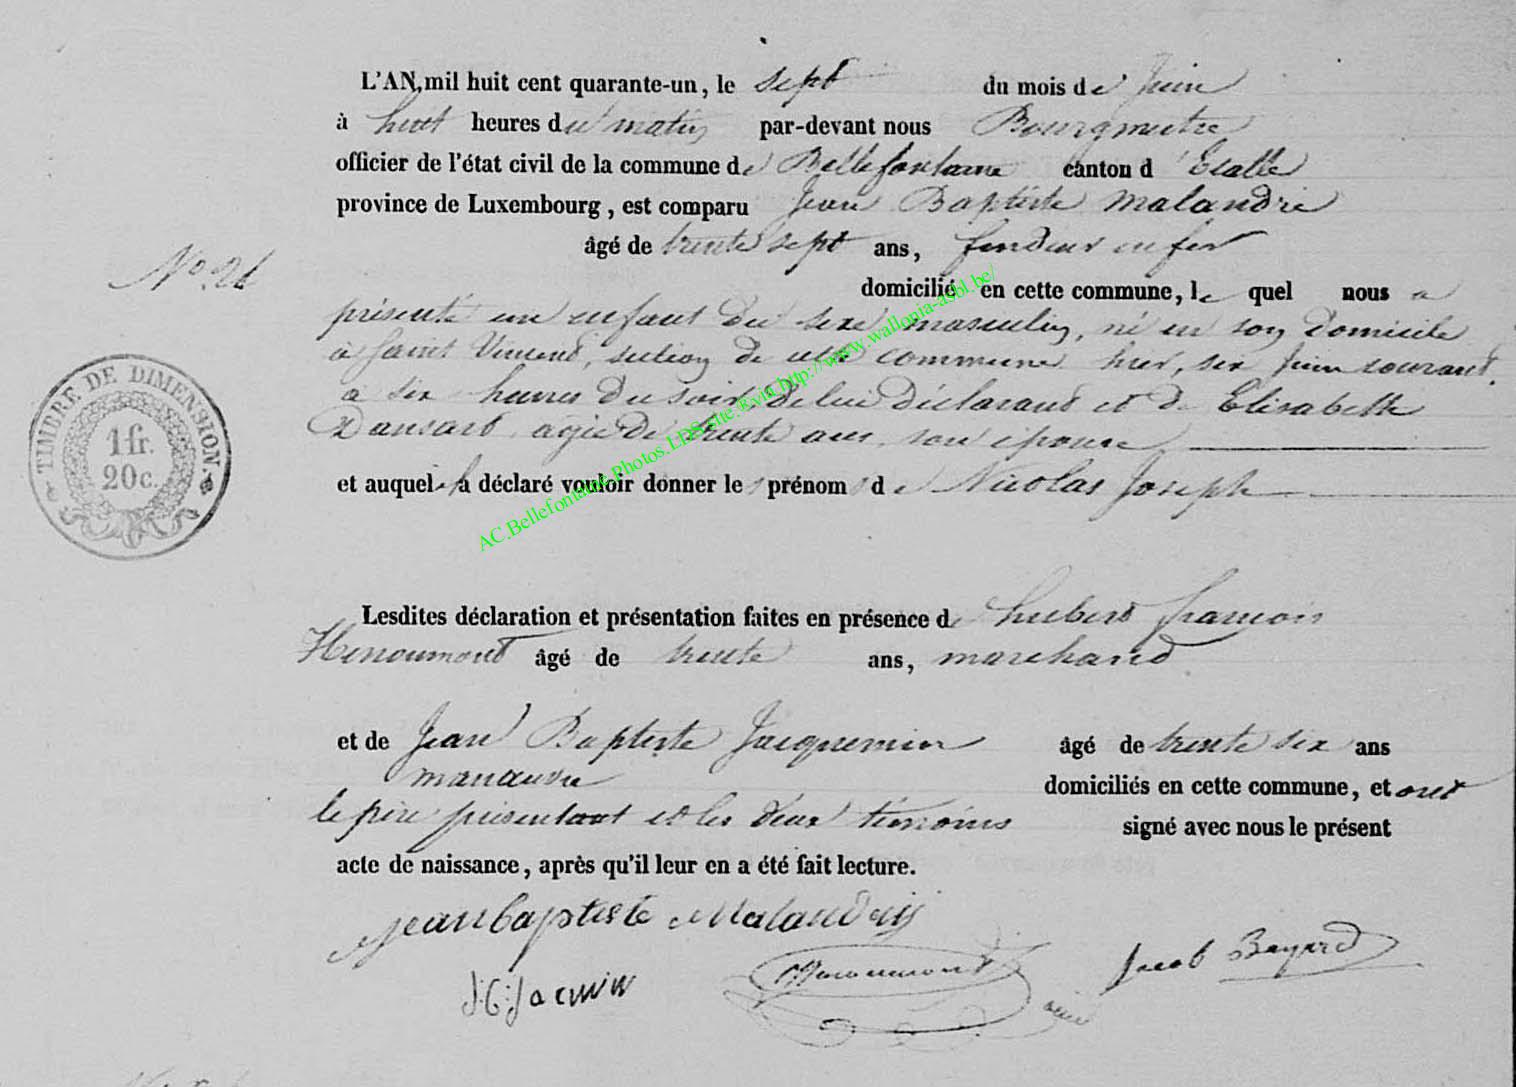 L'AN, mil huit cent quarante-un, le sept du mois de Juin
à huit heures du matin par-devant nous Bourgmestre
officier de l'état civil de la commune de Bellefontaine canton d'Etalle
province de Luxembourg, est comparu Jean Baptiste Malandrie
âgé de trente sept ans, fondeur en fer
N° 21
domicilié en cette commune, le quel nous a
présenté un enfant du sexe masculin, né en son domicile
à Saint Vincent, section de cette commune hier, six juin courant,
à six heures du soir de lui déclarant et de Elisabeth
Dansart agée de trente ans son épouse
et auquel il a déclaré vouloir donner les prénoms de Nicolas Joseph
TIMBRE DE DIMENSION.
1 fr.
20 c.
AC.Bellefontaine.Photos.LDS.site.®via.http://www.wallonia-asbl.be/
Lesdites déclaration et présentation faites en présence de hubert françois
Henoumont âgé de trente ans, marchand
et de Jean Baptiste Jacquemin âgé de trente six ans
manœuvre domiciliés en cette commune, et ont
le père présentant et les deux témoins signé avec nous le présent
acte de naissance, après qu'il leur en a été fait lecture.
jeanbaptiste Malandrij
J:B:Jacmin Henoumont Jacob Bayard